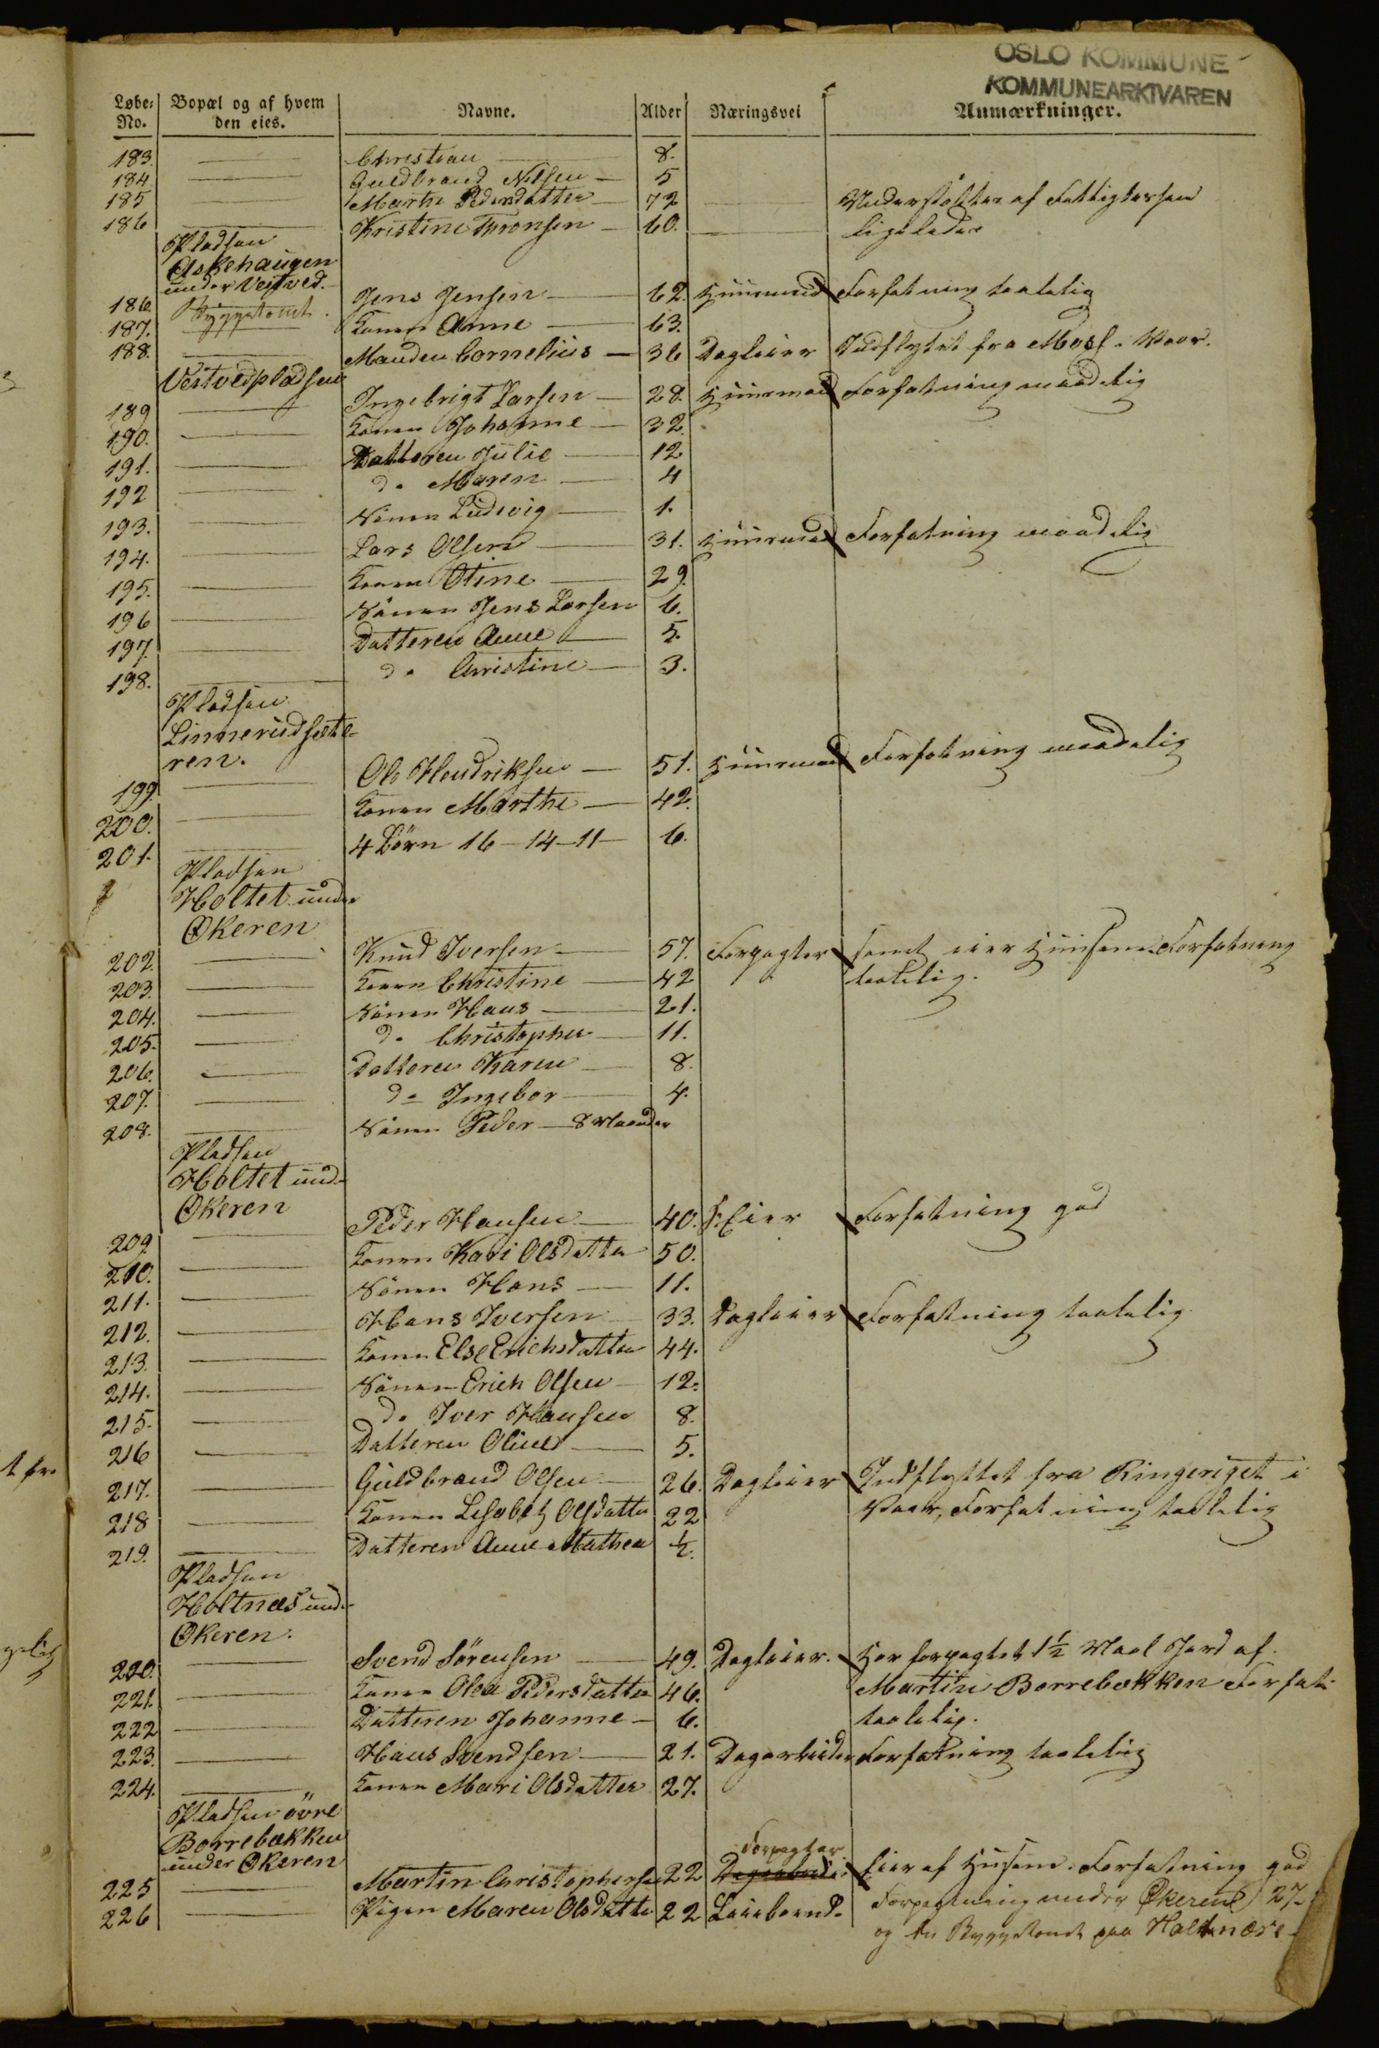 OSLO KOMMUNE
KOMMUNEARKIVAREN
Løbe-No. Bopæl og af hvem den eies. Navne. Alder Næringsvei Anmærkninger.
183. Christian 8.
184 Guldbrand Nilsen 5
185 Marthe Pedersdatter 72 Understøttes af Fattigkassen
186 Kristine Thronsen 60. ligeledes
Pladsen
Askehaugen
under Veitved.
186. Byggetomt. Jens Jensen 62. Huusmand Forfatning taalelig
187. Konen Anne 63.
188. Manden Cornelius 36 Dagleier Indflyttet fra Moss. Vaar.
Veitvedpladsen
189 Ingebrigt Larsen 28. Huusmand Forfatning maadelig
190. Konen Johanne 32
191. Datteren Julie 12
192 do Maren 4
193. Sönen Ludvig 1.
194. Lars Olsen 31. Huusmand Forfatning maadelig
195. Konen Otine 29.
196 Sönen Jens Larsen 6.
197. Datteren Anne 5.
198. do Christine 3.
Pladsen
Linnerudsæte-
ren.
199. Ole Hendriksen 51. Huusmand Forfatning maadelig
200. Konen Marthe 42.
201. 4 Börn 16-14-11- 6.
Pladsen
Holtet under
Økeren
202. Knud Iversen 57. Forpagter samt eier Huusene. Forfatning
203. Konen Christine 42 taalelig.
204. Sönen Hans 21.
205. do Christopher 11.
206. Datteren Karen 8.
207. do Ingebor 4.
208. Sönen Peder 8 Maander
Pladsen
Holtet und.
Økeren
209. Peder Hansen 40. Eier Forfatning god
210. Konen Kari Olsdatter 50.
211. Sönen Hans 11.
212. Hans Iversen 33. Dagleier Forfatning taalelig
213. Konen Else Erichsdatter 44.
214. Sönen Erich Olsen 12.
215. do Iver Hansen 8.
216 Datteren Oline 5.
217. Guldbrand Olsen 26. Dagleier Indflyttet fra Ringeriget i
218 Konen Lisabet Olsdatter 22 Vaar, Forfatning taalelig
219. Datteren Anne Mathea ½.
Pladsen
Holtnæs und.
Økeren.
220. Svend Sörensen 49. Dagleier. Har forpagtet 1½ Maal Jord af
221. Konen Olea Pedersdatter 46. Martin Borrebækken Forfat.
222 Datteren Johanne 6. taalelig.
223. Hans Svendsen 21. Dagarbeider Forfatning taalelig
224. Konen Mari Olsdatter 27.
Pladsen övre
Borrebækken
under Økeren
Forpagter
225 Martin Christophersen 22 Eier af Husene. Forfatning god
226 Pigen Maren Olsdatter 22 Forpagtning under Økeren 27.
og en Byggetomt paa Holtnæs